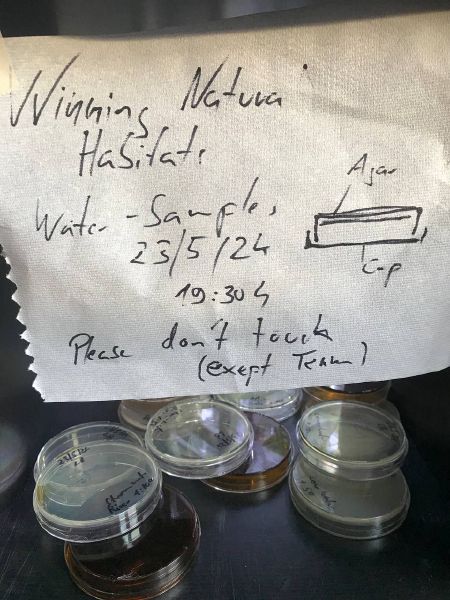 Winning Natural
Habitats
Water-Samples
23/5/24
19:30h
Please don't touch
(exept Team)
Agar
Cup